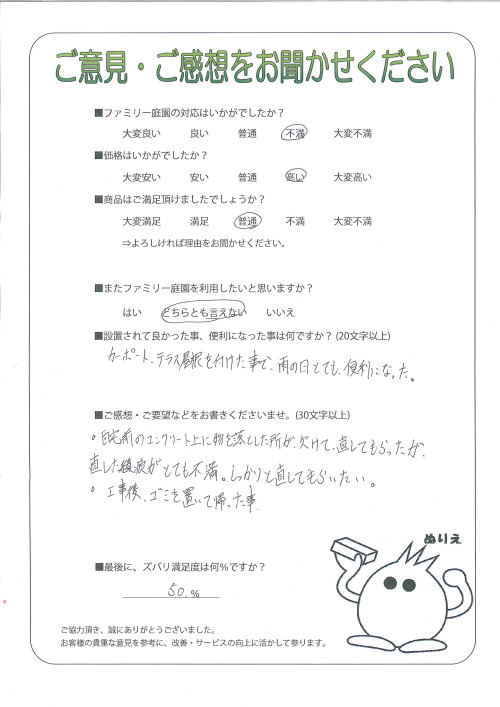 ご意見・ご感想をお聞かせください
■ファミリー庭園の対応はいかがでしたか？
大変良い 良い 普通 不満 大変不満
■価格はいかがでしたか？
大変安い 安い 普通 高い 大変高い
■商品はご満足頂けましたでしょうか？
大変満足 満足 普通 不満 大変不満
⇒よろしければ理由をお聞かせください。
■またファミリー庭園を利用したいと思いますか？
はい どちらとも言えない いいえ
■設置されて良かった事、便利になった事は何ですか？(20文字以上)
カーポート、テラス屋根を付けた事で、雨の日とても、便利になった。
■ご感想・ご要望などをお書きくださいませ。(30文字以上)
。自宅前のコンクリート上に物を落とした所が、欠けて、直してもらったが、
直した後痕がとても不満。しっかりと直してもらいたい。
。工事後、ゴミを置いて帰った事
ぬりえ
■最後に、ズバリ満足度は何％ですか？
50.％
ご協力頂き、誠にありがとうございました。
お客様の貴重な意見を参考に、改善・サービスの向上に活かして参ります。